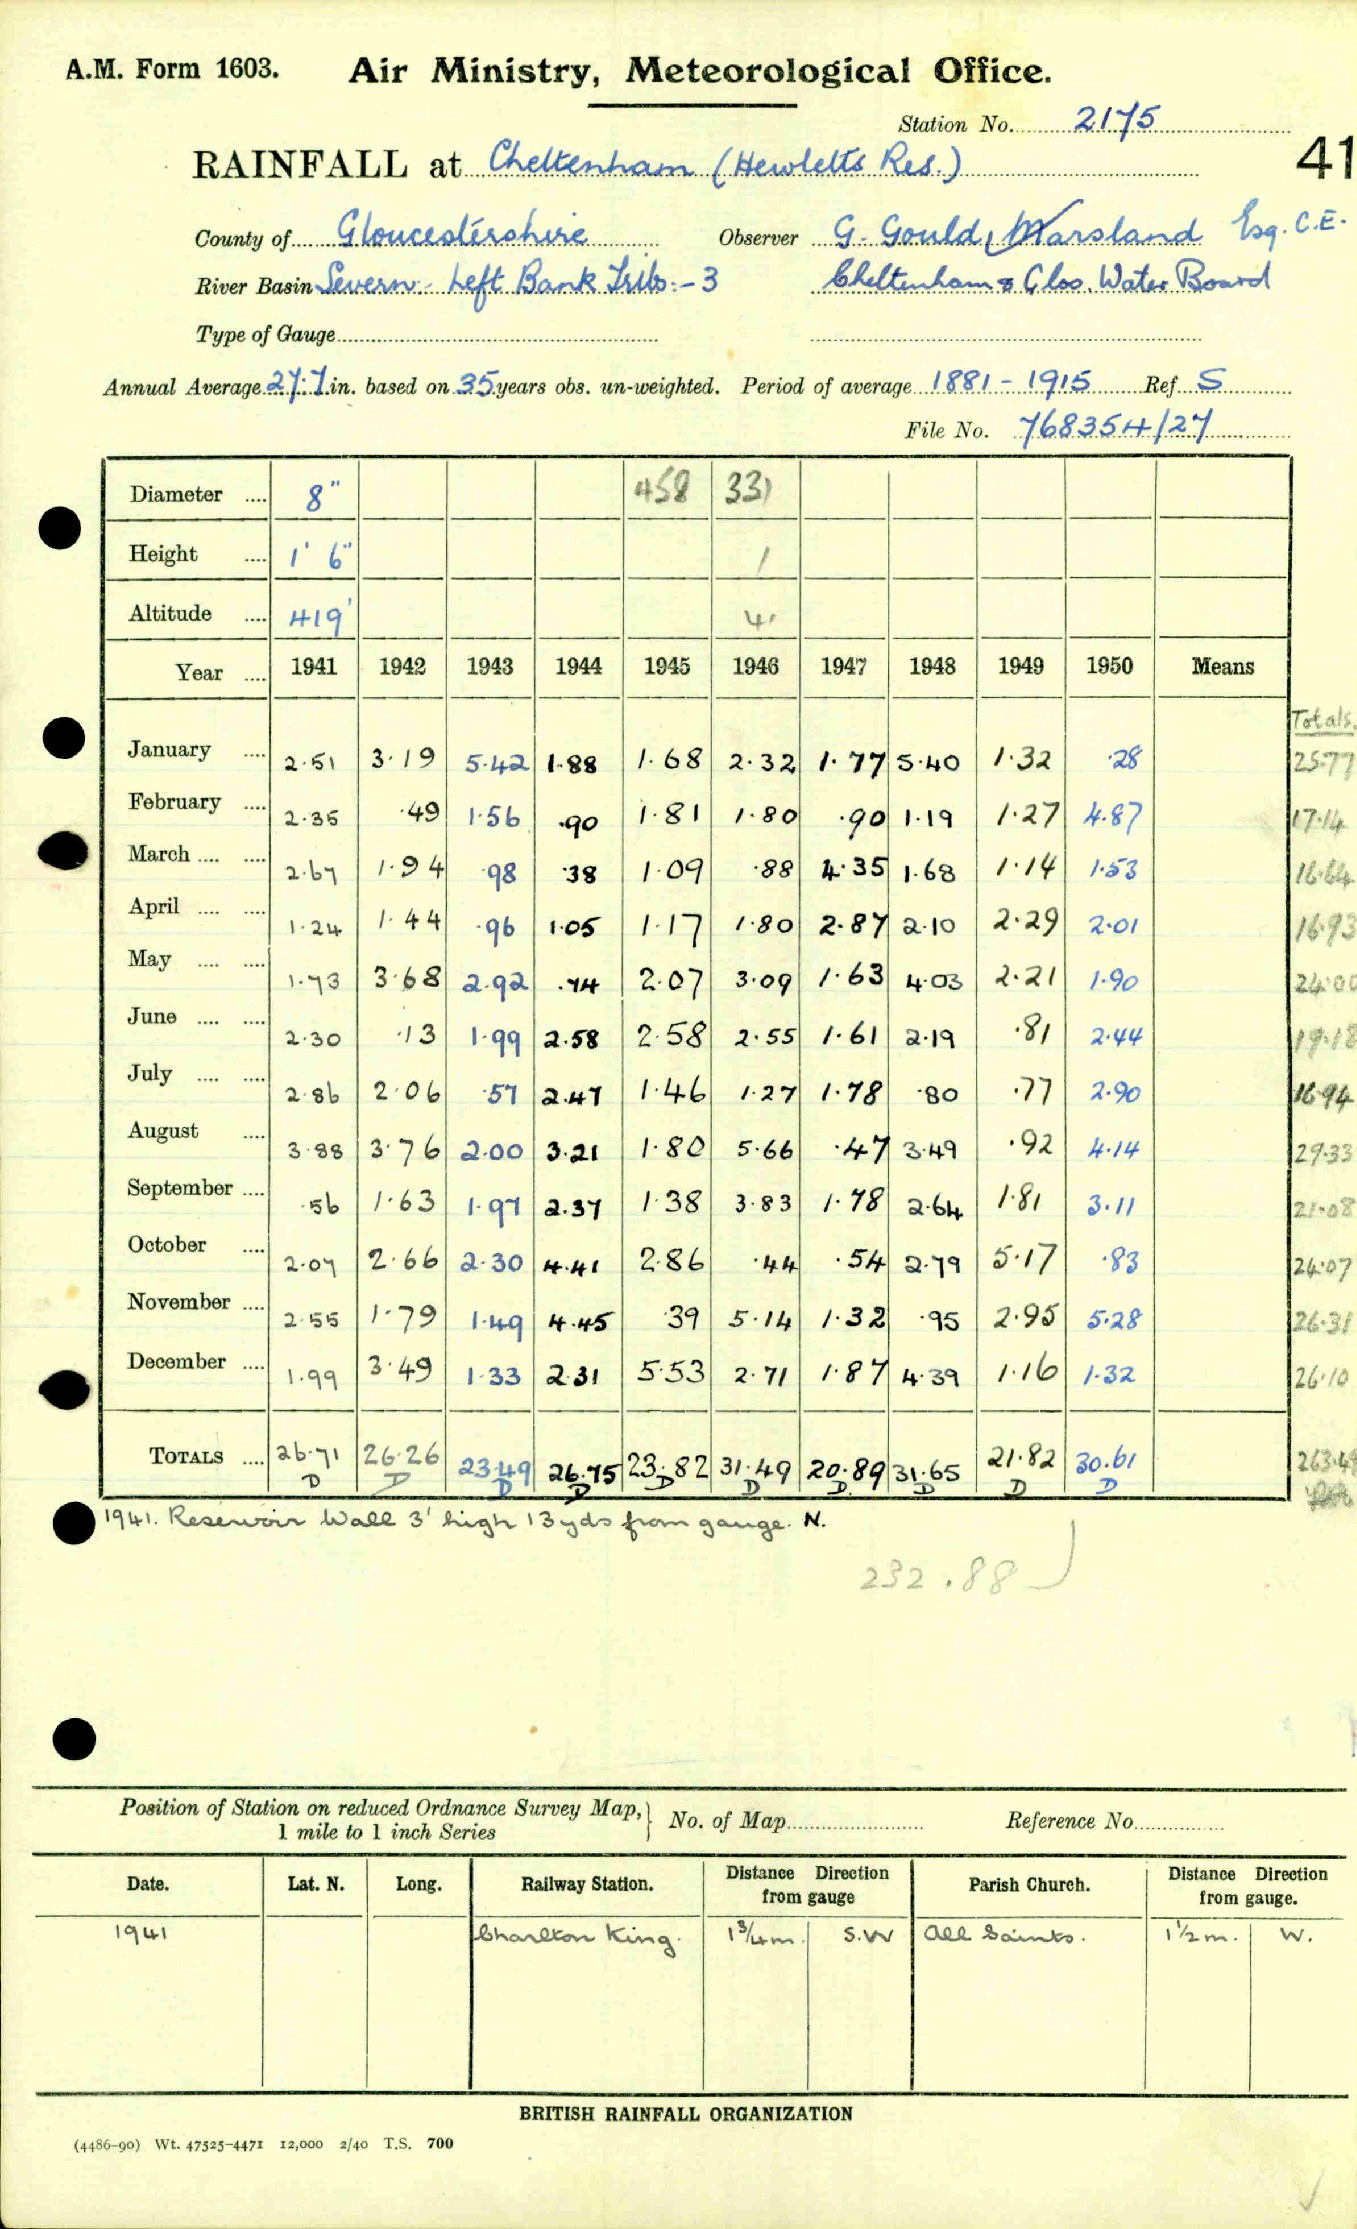 A.M. Form 1603. Air Ministry, Meteorological Office.
Station No. 2175
RAINFALL at Cheltenham (Hewletts Res.) 41
County of Gloucestershire Observer G. Gould, Marsland Esq. C.E.
River Basin Severn - Left Bank Tribs:- 3 Cheltenham & Glos. Water Board
Type of Gauge
Annual Average 27.7 in. based on 35 years obs. un-weighted. Period of average 1881 - 1915 Ref. S
File No. 768354/27
Diameter .... 8" 458 331
Height .... 1' 6" 1
Altitude .... 419' 4.
Year .... 1941 1942 1943 1944 1945 1946 1947 1948 1949 1950 Means
Totals.
January .... 2.51 3.19 5.42 1.88 1.68 2.32 1.77 5.40 1.32 .28 25.77
February .... 2.35 .49 1.56 .90 1.81 1.80 .90 1.19 1.27 4.87 17.14
March .... .... 2.67 1.94 .98 .38 1.09 .88 4.35 1.68 1.14 1.53 16.64
April .... .... 1.24 1.44 .96 1.05 1.17 1.80 2.87 2.10 2.29 2.01 16.93
May .... .... 1.73 3.68 2.92 .74 2.07 3.09 1.63 4.03 2.21 1.90 24.00
June .... .... 2.30 .13 1.99 2.58 2.58 2.55 1.61 2.19 .81 2.44 19.18
July .... .... 2.86 2.06 .57 2.47 1.46 1.27 1.78 .80 .77 2.90 16.94
August .... 3.88 3.76 2.00 3.21 1.80 5.66 .47 3.49 .92 4.14 29.33
September .... .56 1.63 1.97 2.37 1.38 3.83 1.78 2.64 1.81 3.11 21.08
October .... 2.07 2.66 2.30 4.41 2.86 .44 .54 2.79 5.17 .83 24.07
November .... 2.55 1.79 1.49 4.45 .39 5.14 1.32 .95 2.95 5.28 26.31
December .... 1.99 3.49 1.33 2.31 5.53 2.71 1.87 4.39 1.16 1.32 26.10
TOTALS .... 26.71 26.26 23.49 26.75 23.82 31.49 20.89 31.65 21.82 30.61 263.49
D D D D D D D D D D
1941. Reservoir Wall 3' high 13yds from gauge. N.
232.88
Position of Station on reduced Ordnance Survey Map, No. of Map Reference No.
1 mile to 1 inch Series
Date. Lat. N. Long. Railway Station. Distance Direction from gauge Parish Church. Distance Direction from gauge.
1941 Charlton King. 1 3/4 m. S.W All Saints. 1 1/2 m. W.
BRITISH RAINFALL ORGANIZATION
(4486-90) Wt. 47525-4471 12,000 2/40 T.S. 700